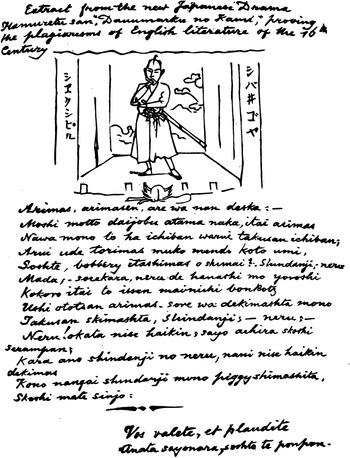 Extract from the new Japanese Drama
Hamuretu san, "Danumarku no Kami," proving
the plagiarisms of English literature of the 16th
Century
シヱクスピル
シバヰゴヤ
Arimas, arimasen, are wa nan deska: —
Moshi motto daijobu atama naka, itai arimas
Nawa mono to ha ichiban warui takusan ichiban;
Arui ude torimas muko mendo koto umi,
Soshte, bobbery itashimas o shimai? — Shindanji, neru
Mada, — sorekara, neru de hanashi no yoroshi
Kokoro itai to issen mainichi bonkotz
Ushi ototian arimas — sore wa dekimashta mono
Takusan skimashta, Shindanji; — neru; —
Neru! okata nise haikin; sayo achira skoshi
serampan;
Kara ano shindanji no neru, nani nise haikin
dekimas
Kono nangai shindanji mono piggy shimashita,
Skoshi mate sinjo:
Vos valete, et plaudite
Anata sayonara, soshte te ponpon.